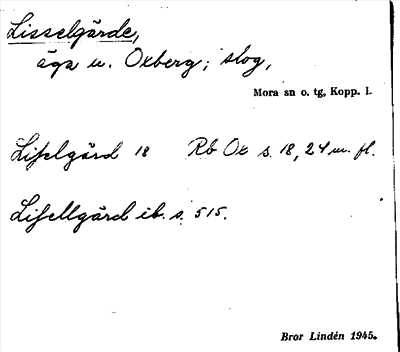 Lisselgärde,
äga u. Oxberg; slog,
Mora sn o. tg, Kopp. l.
Lißelgärd 18 Rb Ox s. 18, 24 m. fl.
Lißellgärd ib. s. 515.
Bror Lindén 1945.